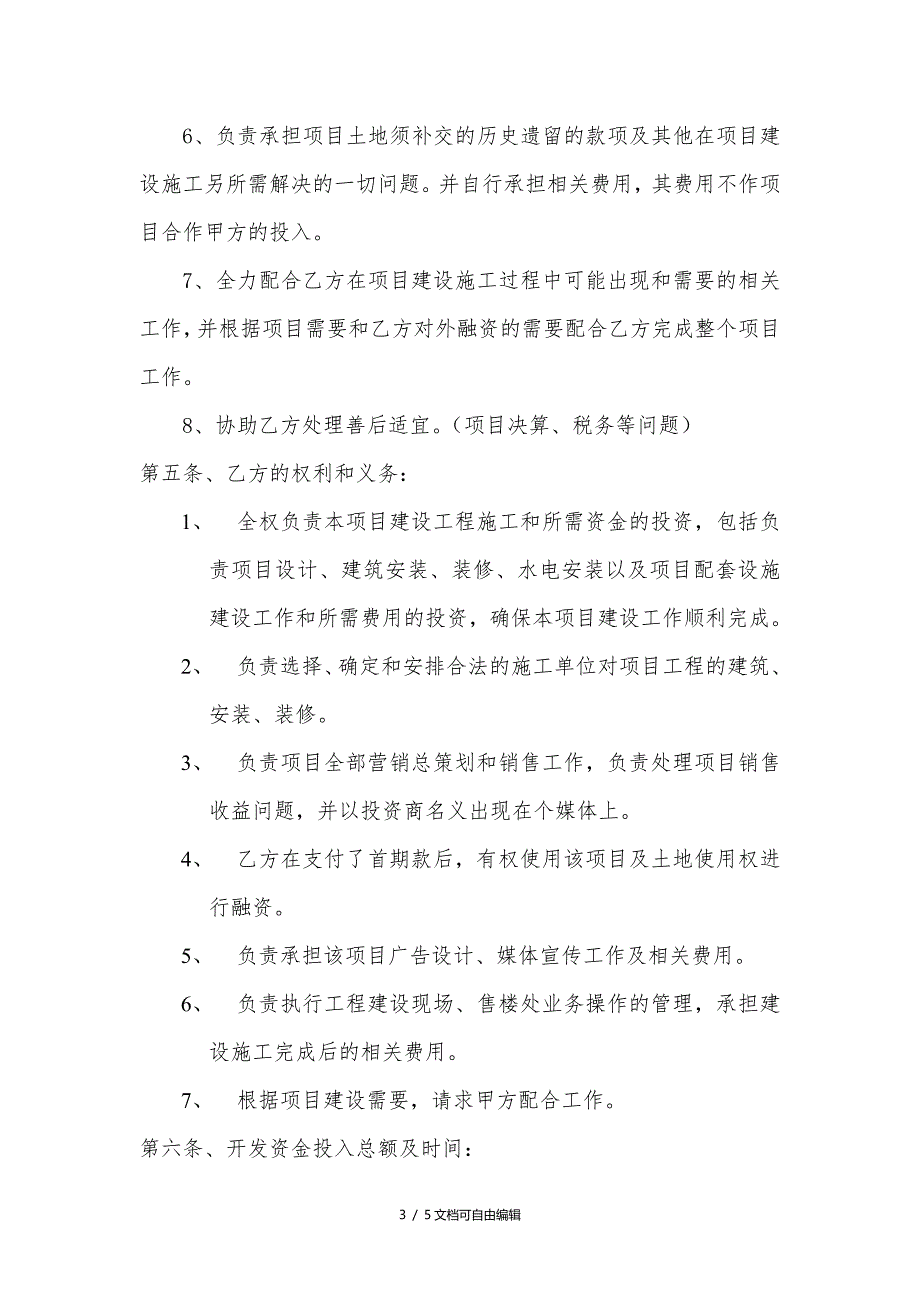 6、负责承担项目土地须补交的历史遗留的款项及其他在项目建
设施工另所需解决的一切问题。并自行承担相关费用，其费用不作项
目合作甲方的投入。
7、全力配合乙方在项目建设施工过程中可能出现和需要的相关
工作,并根据项目需要和乙方对外融资的需要配合乙方完成整个项目
工作。
8、协助乙方处理善后适宜。（项目决算、税务等问题）
第五条、乙方的权利和义务：
1、 全权负责本项目建设工程施工和所需资金的投资，包括负
责项目设计、建筑安装、装修、水电安装以及项目配套设施
建设工作和所需费用的投资，确保本项目建设工作顺利完成。
2、 负责选择、确定和安排合法的施工单位对项目工程的建筑、
安装、装修。
3、 负责项目全部营销总策划和销售工作，负责处理项目销售
收益问题，并以投资商名义出现在个媒体上。
4、 乙方在支付了首期款后，有权使用该项目及土地使用权进
行融资。
5、 负责承担该项目广告设计、媒体宣传工作及相关费用。
6、 负责执行工程建设现场、售楼处业务操作的管理，承担建
设施工完成后的相关费用。
7、 根据项目建设需要，请求甲方配合工作。
第六条、开发资金投入总额及时间：
3 / 5文档可自由编辑